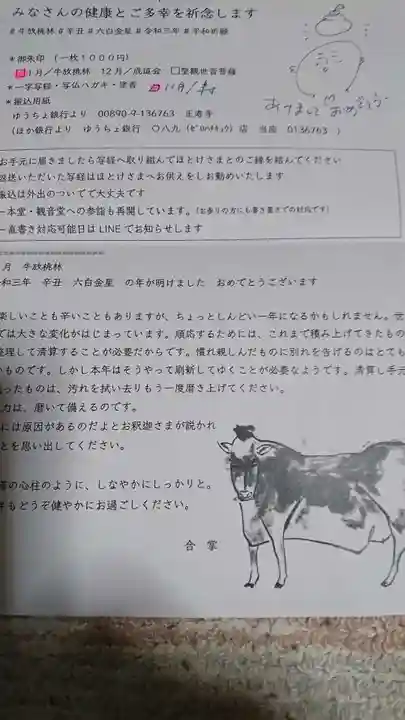 みなさんの健康とご多幸を祈念します
#牛放桃林 #辛丑 #六白金星 #令和三年 #平和祈願
*御朱印 (一枚1000円)
1月/牛放桃林 12月/成道会 □聖観世音菩薩
*一字写経・写仏ハガキ・塗香
*振込用紙
ゆうちょ銀行より 00890-9-136763 正寿寺
(ほか銀行より ゆうちょ銀行 〇八九(ゼロハチキュウ)店 当座 0136763 )
あけまして おめでとう
お手元に届きましたら写経へ取り組んでほとけさまとのご縁を結んでください
返送いただいた写経はほとけさまへお供えをしお勤めいたします
振込は外出のついでで大丈夫です
ー本堂・観音堂への参詣も再開しています。(お参りの方にも書き置きでの対応です)
ー直書き対応可能日はLINEでお知らせします
月 牛放桃林
和三年 辛丑 六白金星 の年が明けました おめでとうございます
楽しいことも辛いこともありますが、ちょっとしんどい一年になるかもしれません。世
では大きな変化がはじまっています。順応するためには、これまで積み上げてきたもの
整理して清算することが必要だからです。慣れ親しんだものに別れを告げるのはとても
いものです。しかし本年はそうやって刷新してゆくことが必要なようです。清算し手元
ったものは、汚れを拭い去りもう一度磨き上げてください。
力は、磨いて備えるのです。
には原因があるのだよとお釈迦さまが説かれ
とを思い出してください。
の心柱のように、しなやかにしっかりと。
もどうぞ健やかにお過ごしください。
合 掌